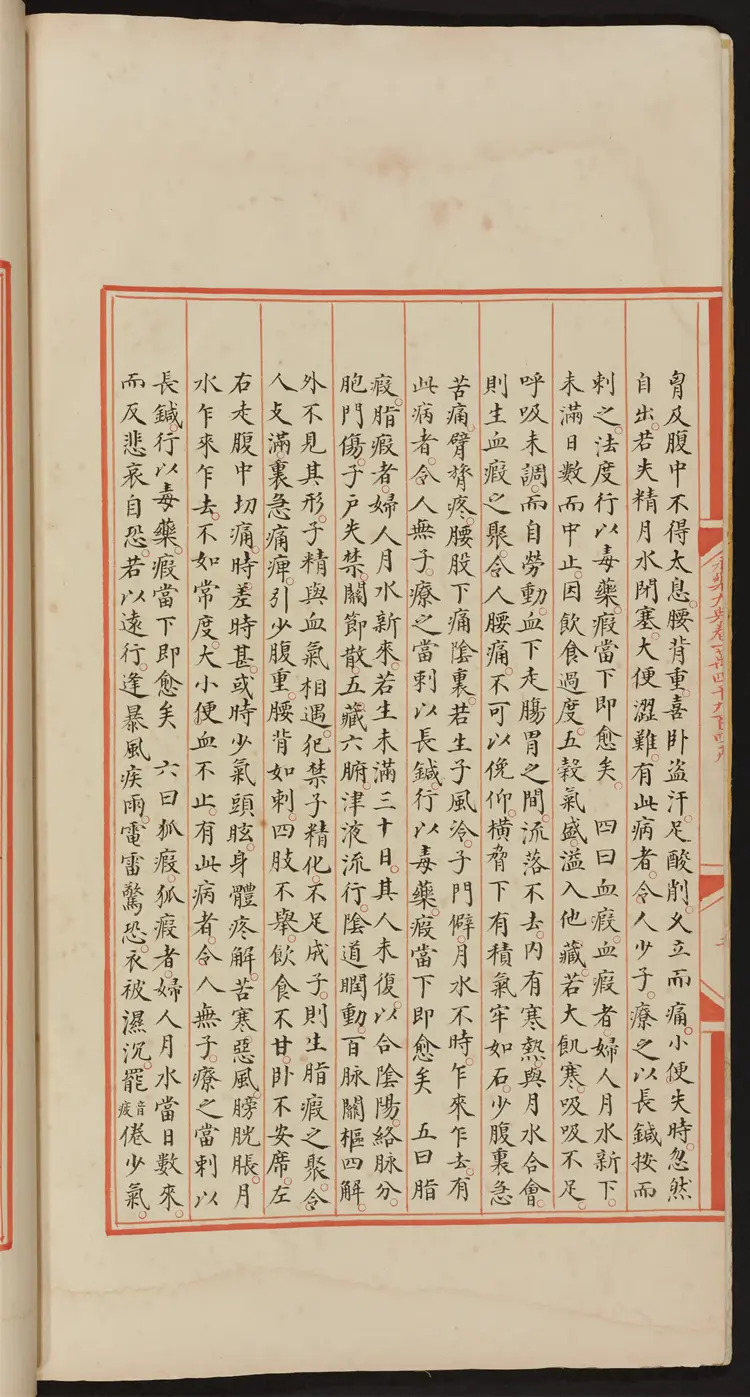 胷及腹中不得太息。腰背重。喜卧盜汗。足酸削。乆立而痛。小便失時。忽然
自出。若失精月水閉塞。大便澀難。有此病者。令人少子。療之以長鍼按而
刺之。法度行以毒藥。瘕當下即愈矣。　四曰血瘕。血瘕者。婦人月水新下。
未滿日數而中止。因飲食過度。五穀氣盛。溢入他藏。若大飢寒。吸吸不足。
呼吸未調。而自勞動。血下走腸胃之間。流落不去。内有寒熱。與月水合會。
則生血瘕之聚。令人腰痛。不可以俛仰。橫脅下有積氣牢如石。少腹裏急
苦痛。背膂疼。腰股下痛陰裏。若生子風冷。子門僻。月水不時。乍來乍去。有
此病者。令人無子。療之當刺以長鍼。行以毒藥。瘕當下即愈矣　五曰脂
瘕。脂瘕者。婦人月水新來。若生未滿三十日。其人未復。以合陰陽。絡脉分。
胞門傷。子户失禁。關節散。五藏六腑。津液流行。陰道瞤動。百脉關樞四解。
外不見其形。子精與血氣相遇。犯禁子精化。不足成子。則生脂瘕之聚。令
人支滿。裏急痛痺。引少腹重。腰背如刺。四肢不舉。飲食不甘。卧不安席。左
右走腹中切痛。時差時甚。或時少氣頭眩。身體疼解。苦寒惡風。膀胱脹。月
水乍來乍去。不如常度。大小便血不止。有此病者。令人無子。療之當刺以
長鍼。行以毒藥。瘕當下即愈矣　六曰狐瘕。狐瘕者。婦人月水當日數來。
而反悲哀自恐。若以遠行。逢暴風疾雨。電雷驚恐。衣被濕沉。罷音疲倦少氣。